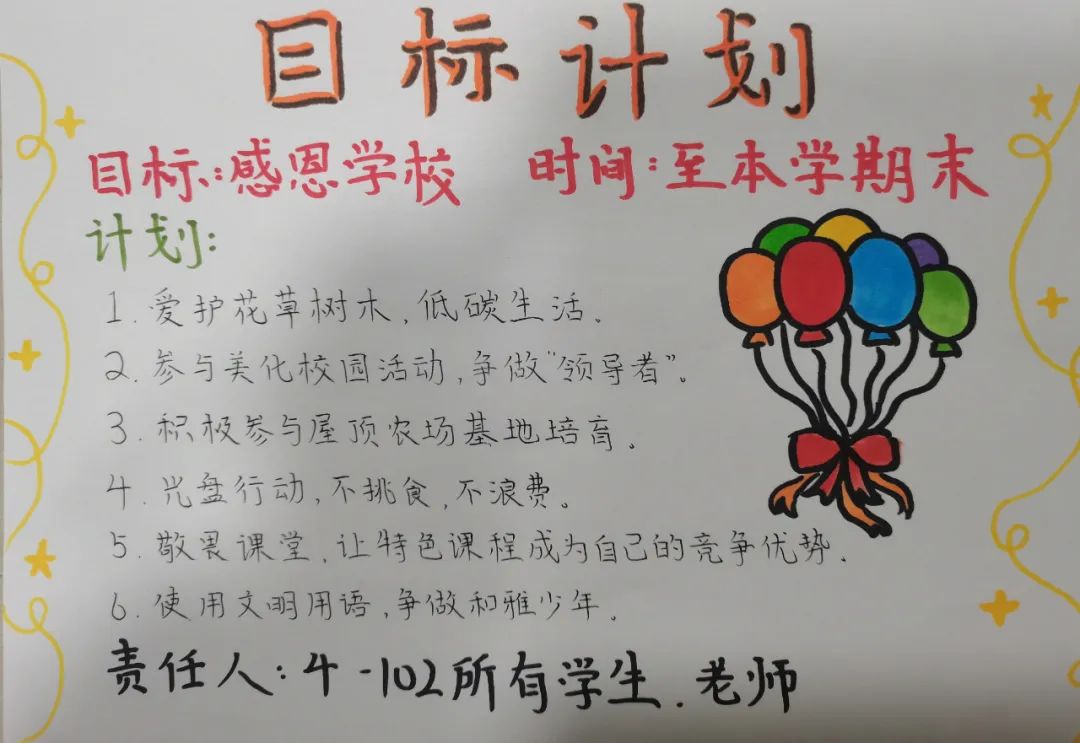 目标计划
目标:感恩学校 时间:至本学期末
计划:
1.爱护花草树木,低碳生活。
2.参与美化校园活动,争做"领导者"。
3.积极参与屋顶农场基地培育。
4.光盘行动,不挑食,不浪费。
5.敬畏课堂,让特色课程成为自己的竞争优势.
6.使用文明用语,争做和雅少年.
责任人:4-102所有学生.老师